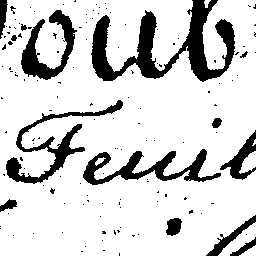 oub
Feuil